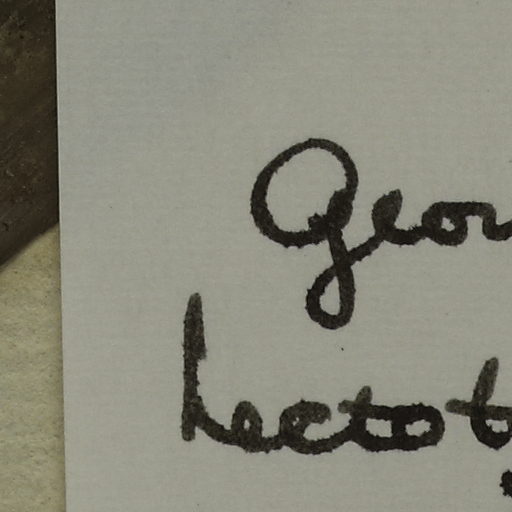 Geor
hectot